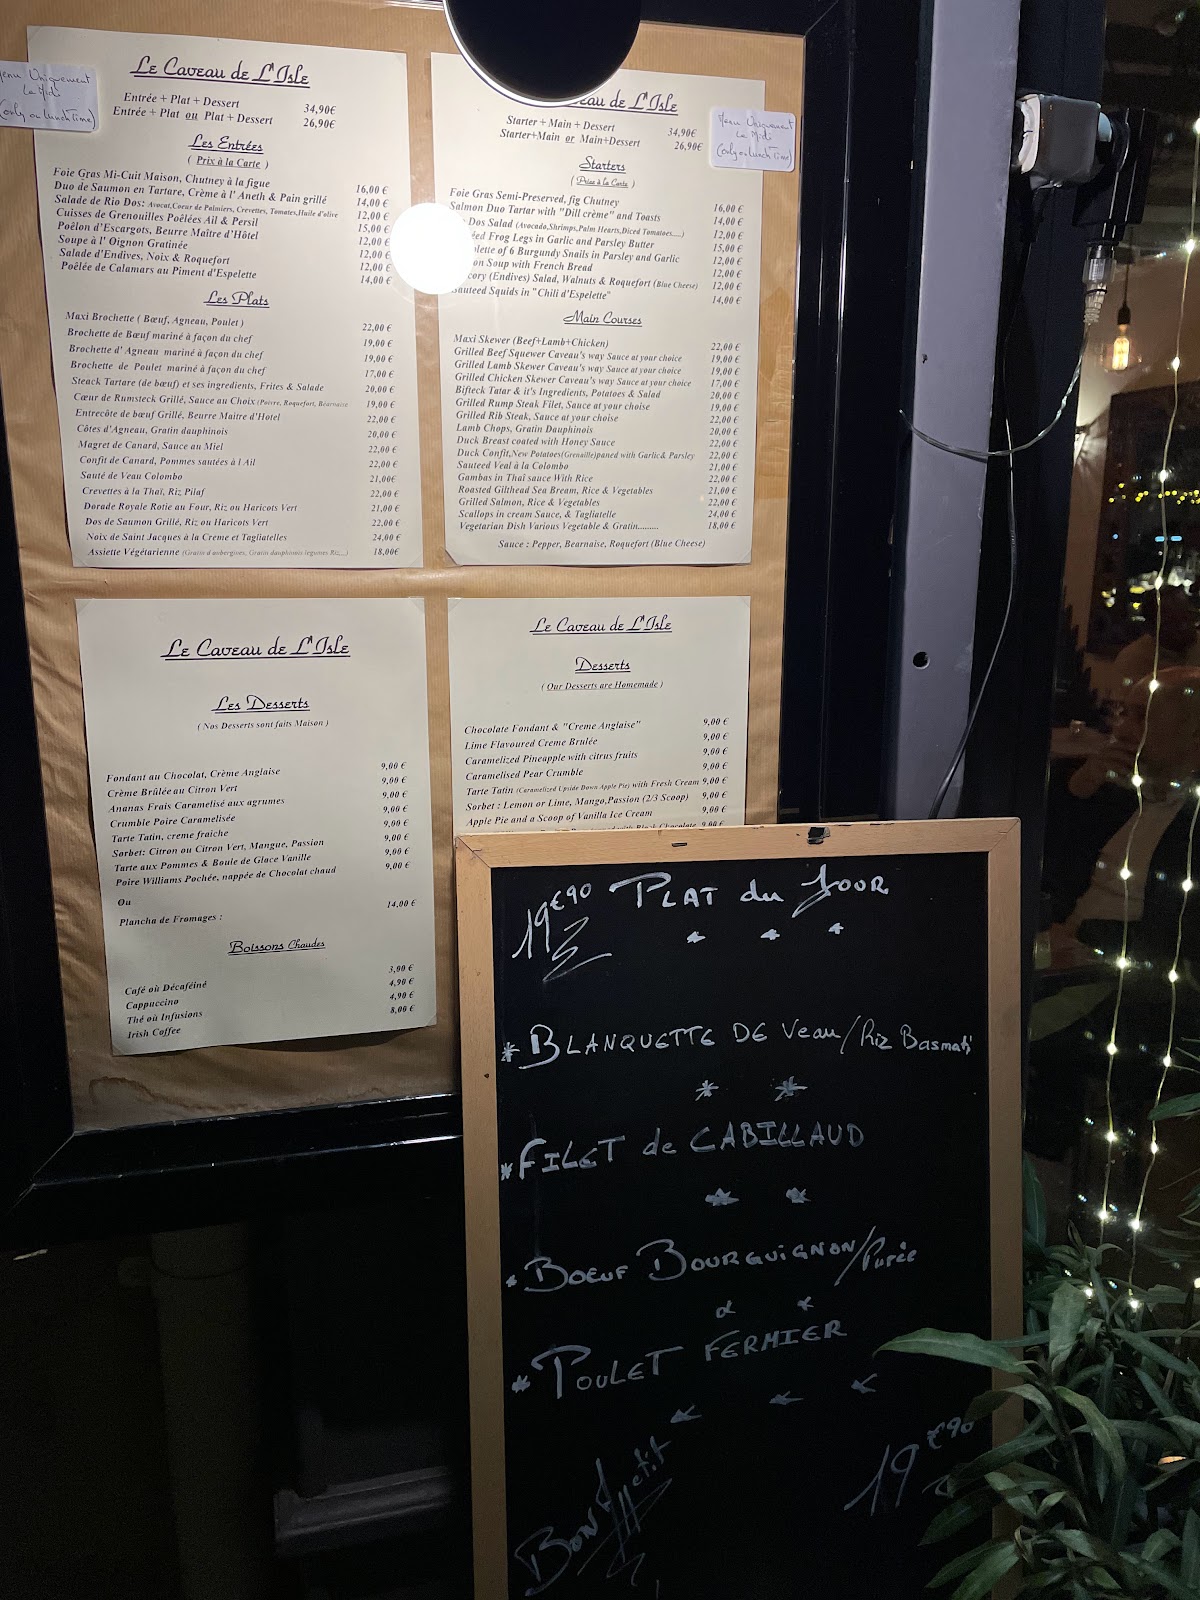 Menu Uniquement
Le Midi
(only on lunch Time)
Le Caveau de L'Isle
Entrée + Plat + Dessert 34,90€
Entrée + Plat ou Plat + Dessert 26,90€
Les Entrées
( Prix à la Carte )
Foie Gras Mi-Cuit Maison, Chutney à la figue 16,00 €
Duo de Saumon en Tartare, Crème à l' Aneth & Pain grillé 14,00 €
Salade de Rio Dos: Avocat,Coeur de Palmiers, Crevettes, Tomates,Huile d'olive 12,00 €
Cuisses de Grenouilles Poêlées Ail & Persil 15,00 €
Poêlon d'Escargots, Beurre Maître d'Hôtel 12,00 €
Soupe à l' Oignon Gratinée 12,00 €
Salade d'Endives, Noix & Roquefort 12,00 €
Poêlée de Calamars au Piment d'Espelette 14,00 €
Les Plats
Maxi Brochette ( Bœuf, Agneau, Poulet ) 22,00 €
Brochette de Bœuf mariné à façon du chef 19,00 €
Brochette d' Agneau mariné à façon du chef 19,00 €
Brochette de Poulet mariné à façon du chef 17,00 €
Steack Tartare (de bœuf) et ses ingredients, Frites & Salade 20,00 €
Cœur de Rumsteck Grillé, Sauce au Choix (Poivre, Roquefort, Béarnaise 19,00 €
Entrecôte de bœuf Grillé, Beurre Maitre d'Hotel 22,00 €
Côtes d'Agneau, Gratin dauphinois 20,00 €
Magret de Canard, Sauce au Miel 22,00 €
Confit de Canard, Pommes sautées à l Ail 22,00 €
Sauté de Veau Colombo 21,00€
Crevettes à la Thaï, Riz Pilaf 22,00 €
Dorade Royale Rotie au Four, Riz ou Haricots Vert 21,00 €
Dos de Saumon Grillé, Riz ou Haricots Vert 22,00 €
Noix de Saint Jacques à la Creme et Tagliatelles 24,00 €
Assiette Végétarienne (Gratin d'aubergines, Gratin dauphinois legumes Riz,...) 18,00€
eau de L'Isle
Starter + Main + Dessert 34,90€
Starter+Main or Main+Dessert 26,90€
Menu Uniquement
Le Midi
(only on lunch Time)
Starters
( Price à la Carte )
Foie Gras Semi-Preserved, fig Chutney 16,00 €
Salmon Duo Tartar with "Dill crème" and Toasts 14,00 €
Dos Salad (Avocado,Shrimps,Palm Hearts,Diced Tomatoes.....) 12,00 €
Frog Legs in Garlic and Parsley Butter 15,00 €
of 6 Burgundy Snails in Parsley and Garlic 12,00 €
Soup with French Bread 12,00 €
(Endives) Salad, Walnuts & Roquefort (Blue Cheese) 12,00 €
Sauteed Squids in "Chili d'Espelette" 14,00 €
Main Courses
Maxi Skewer (Beef+Lamb+Chicken) 22,00 €
Grilled Beef Squewer Caveau's way Sauce at your choice 19,00 €
Grilled Lamb Skewer Caveau's way Sauce at your choice 19,00 €
Grilled Chicken Skewer Caveau's way Sauce at your choice 17,00 €
Bifteck Tatar & it's Ingredients, Potatoes & Salad 20,00 €
Grilled Rump Steak Filet, Sauce at your choise 19,00 €
Grilled Rib Steak, Sauce at your choise 22,00 €
Lamb Chops, Gratin Dauphinois 20,00 €
Duck Breast coated with Honey Sauce 22,00 €
Duck Confit,New Potatoes(Grenaille)paned with Garlic& Parsley 22,00 €
Sauteed Veal à la Colombo 21,00 €
Gambas in Thaï sauce With Rice 22,00 €
Roasted Gilthead Sea Bream, Rice & Vegetables 21,00 €
Grilled Salmon, Rice & Vegetables 22,00 €
Scallops in cream Sauce, & Tagliatelle 24,00 €
Vegetarian Dish Various Vegetable & Gratin......... 18,00 €
Sauce : Pepper, Bearnaise, Roquefort (Blue Cheese)
Le Caveau de L'Isle
Les Desserts
( Nos Desserts sont faits Maison )
Fondant au Chocolat, Crème Anglaise 9,00 €
Crème Brûlée au Citron Vert 9,00 €
Ananas Frais Caramelisé aux agrumes 9,00 €
Crumble Poire Caramelisée 9,00 €
Tarte Tatin, creme fraiche 9,00 €
Sorbet: Citron ou Citron Vert, Mangue, Passion 9,00 €
Tarte aux Pommes & Boule de Glace Vanille 9,00 €
Poire Williams Pochée, nappée de Chocolat chaud 9,00 €
Ou
Plancha de Fromages : 14,00 €
Boissons Chaudes
Café où Décaféiné 3,00 €
Cappuccino 4,90 €
Thé où Infusions 4,90 €
Irish Coffee 8,00 €
Le Caveau de L'Isle
Desserts
( Our Desserts are Homemade )
Chocolate Fondant & "Creme Anglaise" 9,00 €
Lime Flavoured Creme Brulée 9,00 €
Caramelized Pineapple with citrus fruits 9,00 €
Caramelised Pear Crumble 9,00 €
Tarte Tatin (Caramelized Upside Down Apple Pie) with Fresh Cream 9,00 €
Sorbet : Lemon or Lime, Mango,Passion (2/3 Scoop) 9,00 €
Apple Pie and a Scoop of Vanilla Ice Cream 9,00 €
with Black Chocolate 9,00 €
19€90 PLAT du JOUR
* BLANQUETTE DE Veau/Riz Basmati
* FILET de CABILLAUD
* BOEUF BOURGUIGNON/Purée
* POULET FERMIER
BON Appetit
19€90